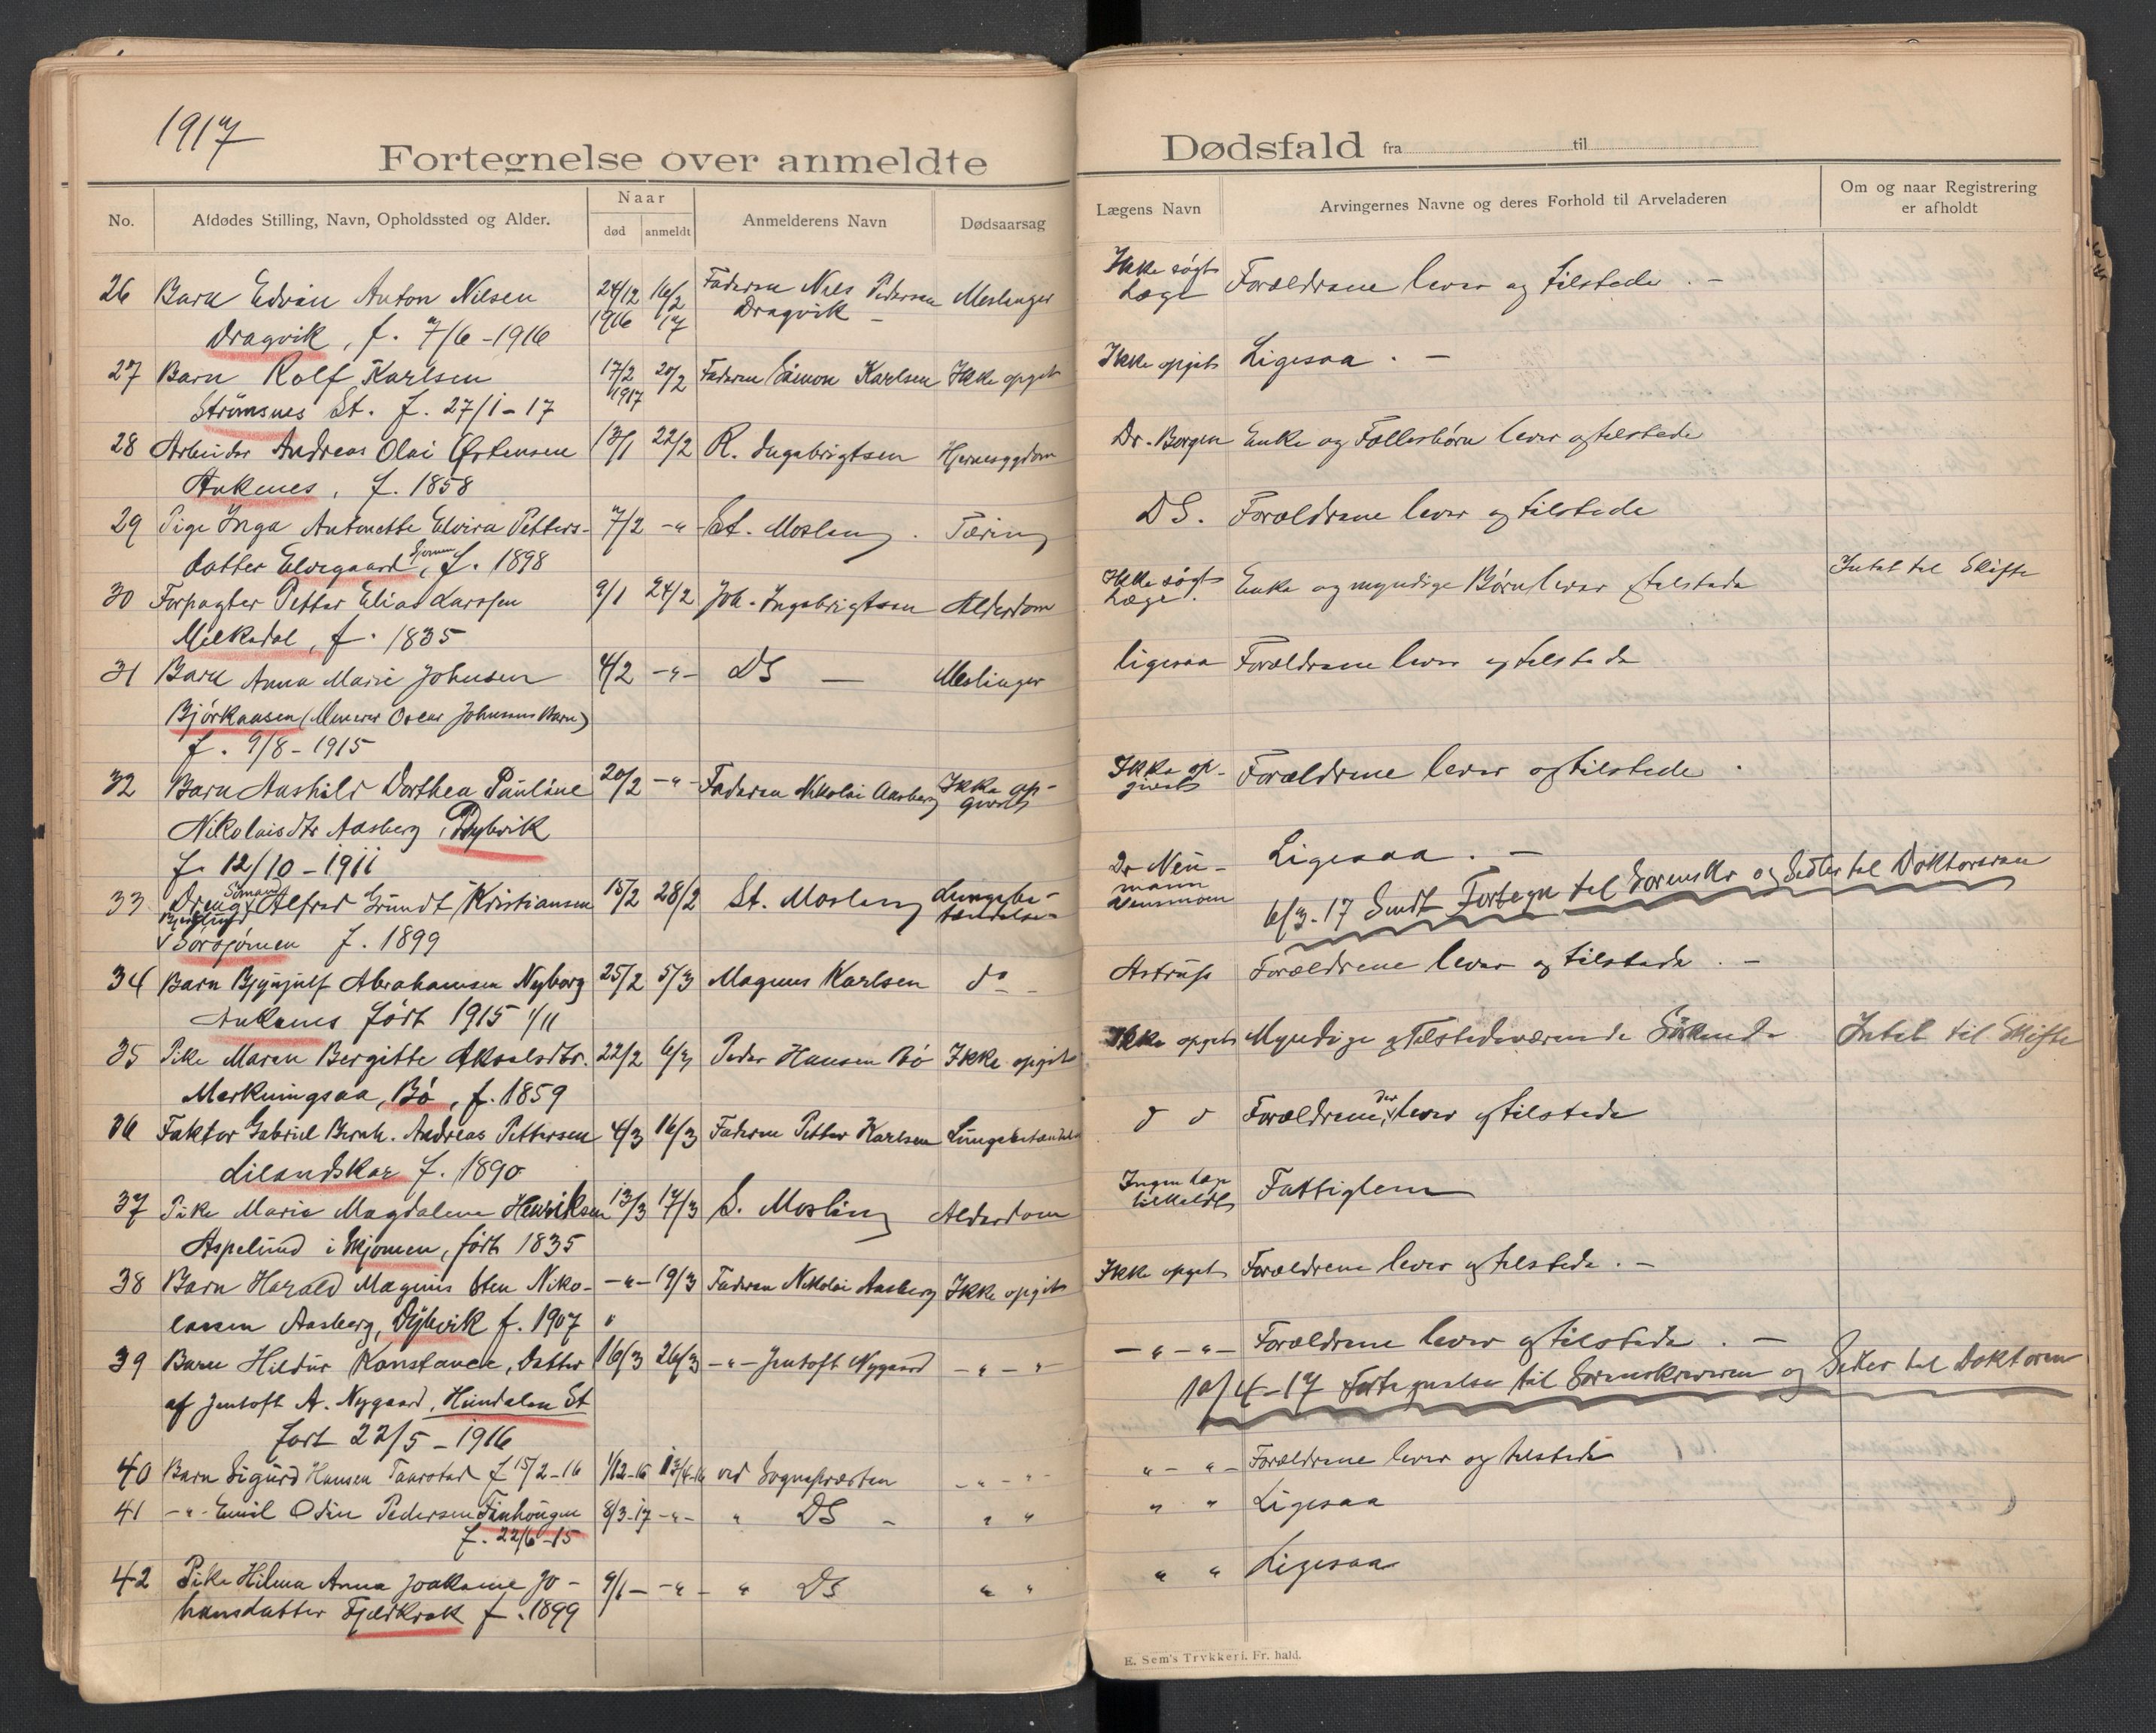 1917
Fortegnelse over anmeldte
No. Afdødes Stilling, Navn, Opholdssted og Alder. Naar død anmeldt Anmelderens Navn Dødsaarsag
26 Barn Edvin Anton Nilsen 24/12 16/2 Faderen Nils Pedersen Meslinger
Dragvik, f. 7/6-1916 1916 17 Dragvik -
27 Barn Rolf Karlsen 17/2 20/2 Faderen Simon Karlsen Ikke opgit
Strømsnes St. f. 27/1-17 1917
28 Arbeider Andreas Olai Østensen 13/1 22/2 R. Ingebrigtsen Hjernesygdom
Ankenes, f. 1858
29 Pige Inga Antonette Elvira Petters- 7/2 -"- St. Mosling. Tæring
datter Elvegaard, Skjomen f. 1898
30 Forpagter Petter Elias Larssen 9/1 24/2 Joh. Ingebrigtsen Alderdom
Melkedal, f. 1835
31 Barn Anna Marie Johnsen 4/2 -"- DS - Meslinger
Bjørkaasen (Minerer Oscar Johnsens Barn)
f. 9/8-1915
32 Barn Aashild Dorthea Pauline 20/2 -"- Faderen Nikolai Aasberg Ikke op-
Nikolaisdtr Aasberg, Dybvik givet
f. 12/10-1911
33 Dreng Alfred Grundt Kristiansen 15/2 28/2 St. Mosling Lungebe-
tændelse
Sørskjomen f. 1899
34 Barn Bjynjulf Abrahamsen Nyborg 25/2 5/3 Magnus Karlsen do -
Ankenes født 1915 1/11
35 Pike Maren Bergitte Akselsdtr. 22/2 6/3 Peder Hansen Bø Ikke opgit
Merkningsaa, Bø, f. 1859
36 Faktor Gabriel Bernh. Andreas Pettersen 4/3 16/3 Faderen Petter Karlsen Lungebetændelse
Lilandskar f. 1890
37 Pike Marie Magdalene Henriksen 13/3 17/3 S. Mosling Alderdom
Aspelund i Skjomen, født 1835
38 Barn Harald Magnus Sten Niko- -"- 19/3 Faderen Nikolai Aasberg Ikke opgit
laisen Aasberg, Dybvik f. 1907 "
39 Barn Hildur Konstance, Datter 16/3 26/3 -"- Jentoft Nygaard -"-"
af Jentoft A. Nygaard, Hundalen St
født 22/5-1916
40 Barn Sigurd Hansen Taarstad f 15/2-16 1/12-16 13/4-16 ved Sognepræsten -"-"-
41 -"- Emil Odin Pedersen Finhaugen 8/3-17 -"- " DS - " "
f. 22/6-15
42 Pike Hilma Anna Joakime Jo- 9/1- -"- " DS " "
hansdatter Fjeldkrok f. 1899
Dødsfald fra til
Lægens Navn Arvingernes Navne og deres Forhold til Arveladeren Om og naar Registrering er afholdt
Ikke søgt
Læge Forældrene lever og tilstede. -
Ikke opgit Ligesaa. -
Dr. Borgen Enke og Fællesbørn lever og tilstede
DS. Forældrene lever og tilstede
Ikke søgt
Læge. Enke og myndige Børn lever og tilstede Intet til Skifte
ligesaa Forældrene lever og tilstede
Ikke op-
givet Forældrene lever og tilstede.
Dr Neu-
mann Ligesaa. -
6/3-17 Sendt Fortegn til Sorenskr og Sedler til Doktoren
Astrup Forældrene lever og tilstede. -
Ikke opgit Myndige og tilstedeværende Søskende Intet til Skifte
d d Forældrene der lever og tilstede
Ingen læge
tilkaldt Fattiglem
Ikke opgit Forældrene lever og tilstede. -
-"-"- Forældrene lever og tilstede. -
10/4-17 Fortegnelse til Sorenskriveren og Sedler til Doktoren
"-"- Forældrene lever og tilstede
" " Ligesaa
" " Ligesaa
E. Sem's Trykkeri, Fr. hald.